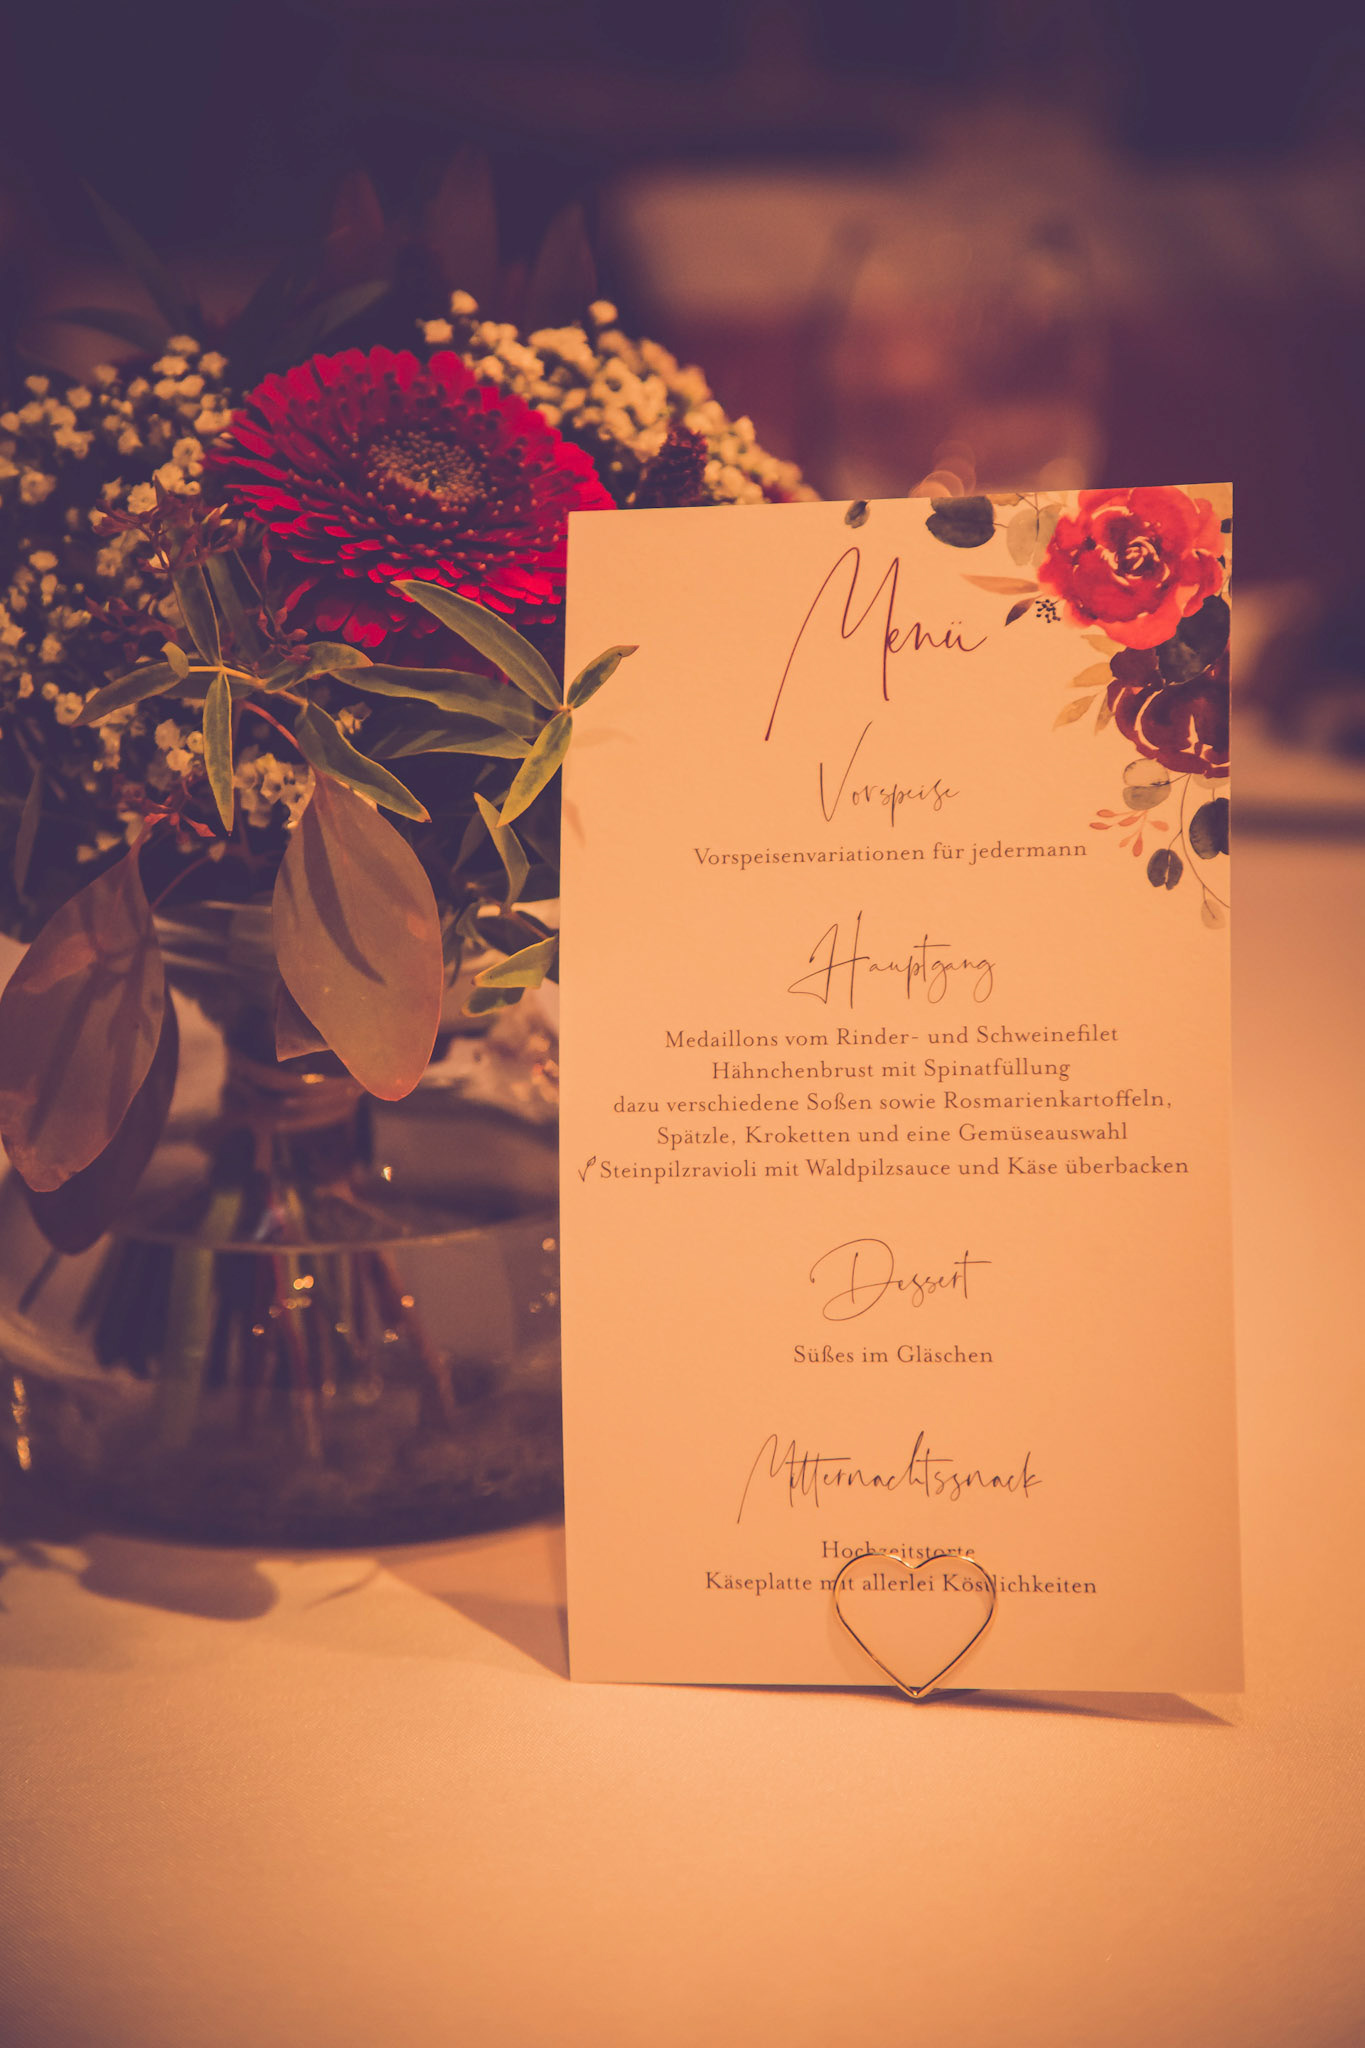 Menü
Vorspeise
Vorspeisenvariationen für jedermann
Hauptgang
Medaillons vom Rinder- und Schweinefilet
Hähnchenbrust mit Spinatfüllung
dazu verschiedene Soßen sowie Rosmarienkartoffeln,
Spätzle, Kroketten und eine Gemüseauswahl
Steinpilzravioli mit Waldpilzsauce und Käse überbacken
Dessert
Süßes im Gläschen
Mitternachtssnack
Hochzeitstorte
Käseplatte mit allerlei Köstlichkeiten